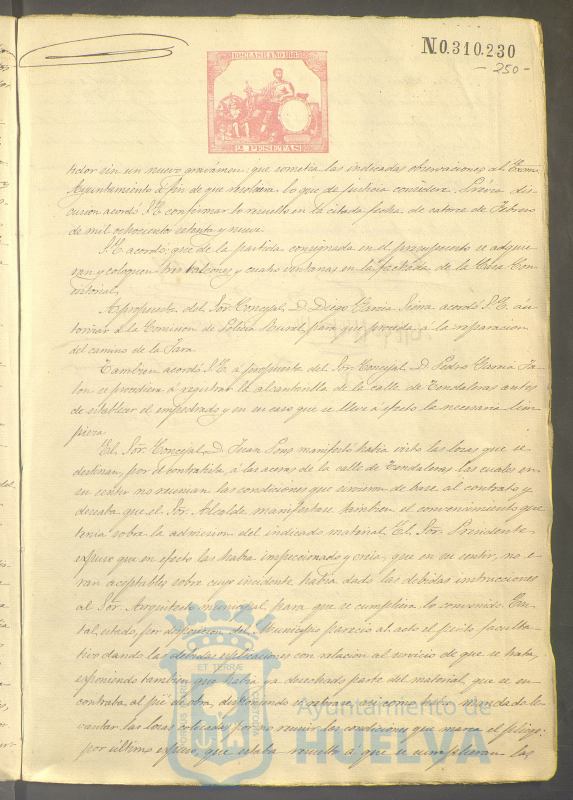 N0.310.230
- 250 -
10ª CLASE AÑO 188
2 PESETAS
tidor sin un nuevo gravámen; que sometia las indicadas observaciones al Excmo
Ayuntamiento á fin de que resolviera lo que de justicia considere. Previa dis-
cusion acordó S.E. confirmar lo resuelto en la citada fecha de catorce de Febrero
de mil ochocientos setenta y nueve.
S.E. acordó; que de la partida consignada en el presupuesto se adquie-
ran y coloquen tres balcones y cuatro ventanas en la fachada de la Casa Con-
sistorial.
A propuesta del Sor Concejal, D. Diego Garcia acordó S.E. au-
torizar á la Comision de Policia Rural para que proceda á la reparacion
del camino de la Jara.
Tambien acordó S.E. á propuesta del Sor Concejal D. Pedro Garcia Ja-
lon se procediera á registrar la alcantarilla de la calle de Tendaleras antes
de establecer el empedrado y en su caso que se lleve á efecto la necesaria lim-
pieza.
El Sor Concejal D. Juan Pons manifestó habia visto las losas que se
destinan, por el contratista, á las aceras de la calle de Tendaleras las cuales en
su sentir no reunian las condiciones que sirvieron de base al contrato y
deseaba que el Sor Alcalde manifestase tambien el convencimiento que
tenia sobre la admision del indicado material. El Sor Presidente
expuso que en efecto las habia inspeccionado y creia, que en su sentir, no e-
ran aceptables sobre cuyo incidente habia dado las debidas instrucciones
al Sor Arquitecto municipal para que se cumpliera lo convenido. En
tal estado, por disposicion del Municipio pareció al acto el perito faculta-
tivo dando las debidas esplicaciones con relacion al servicio de que se trata,
exponiendo tambien que habia ya desechado parte del material, que se en-
contraba al pié de obra, disponiendo se retirase, asi como haber mandado le-
vantar las losas colocadas por no reunir las condiciones que marca el pliego:
por último espuso, que estaba resuelto á que se cumplieran las
ET TERRÆ
Ayuntamiento de
HUELVA